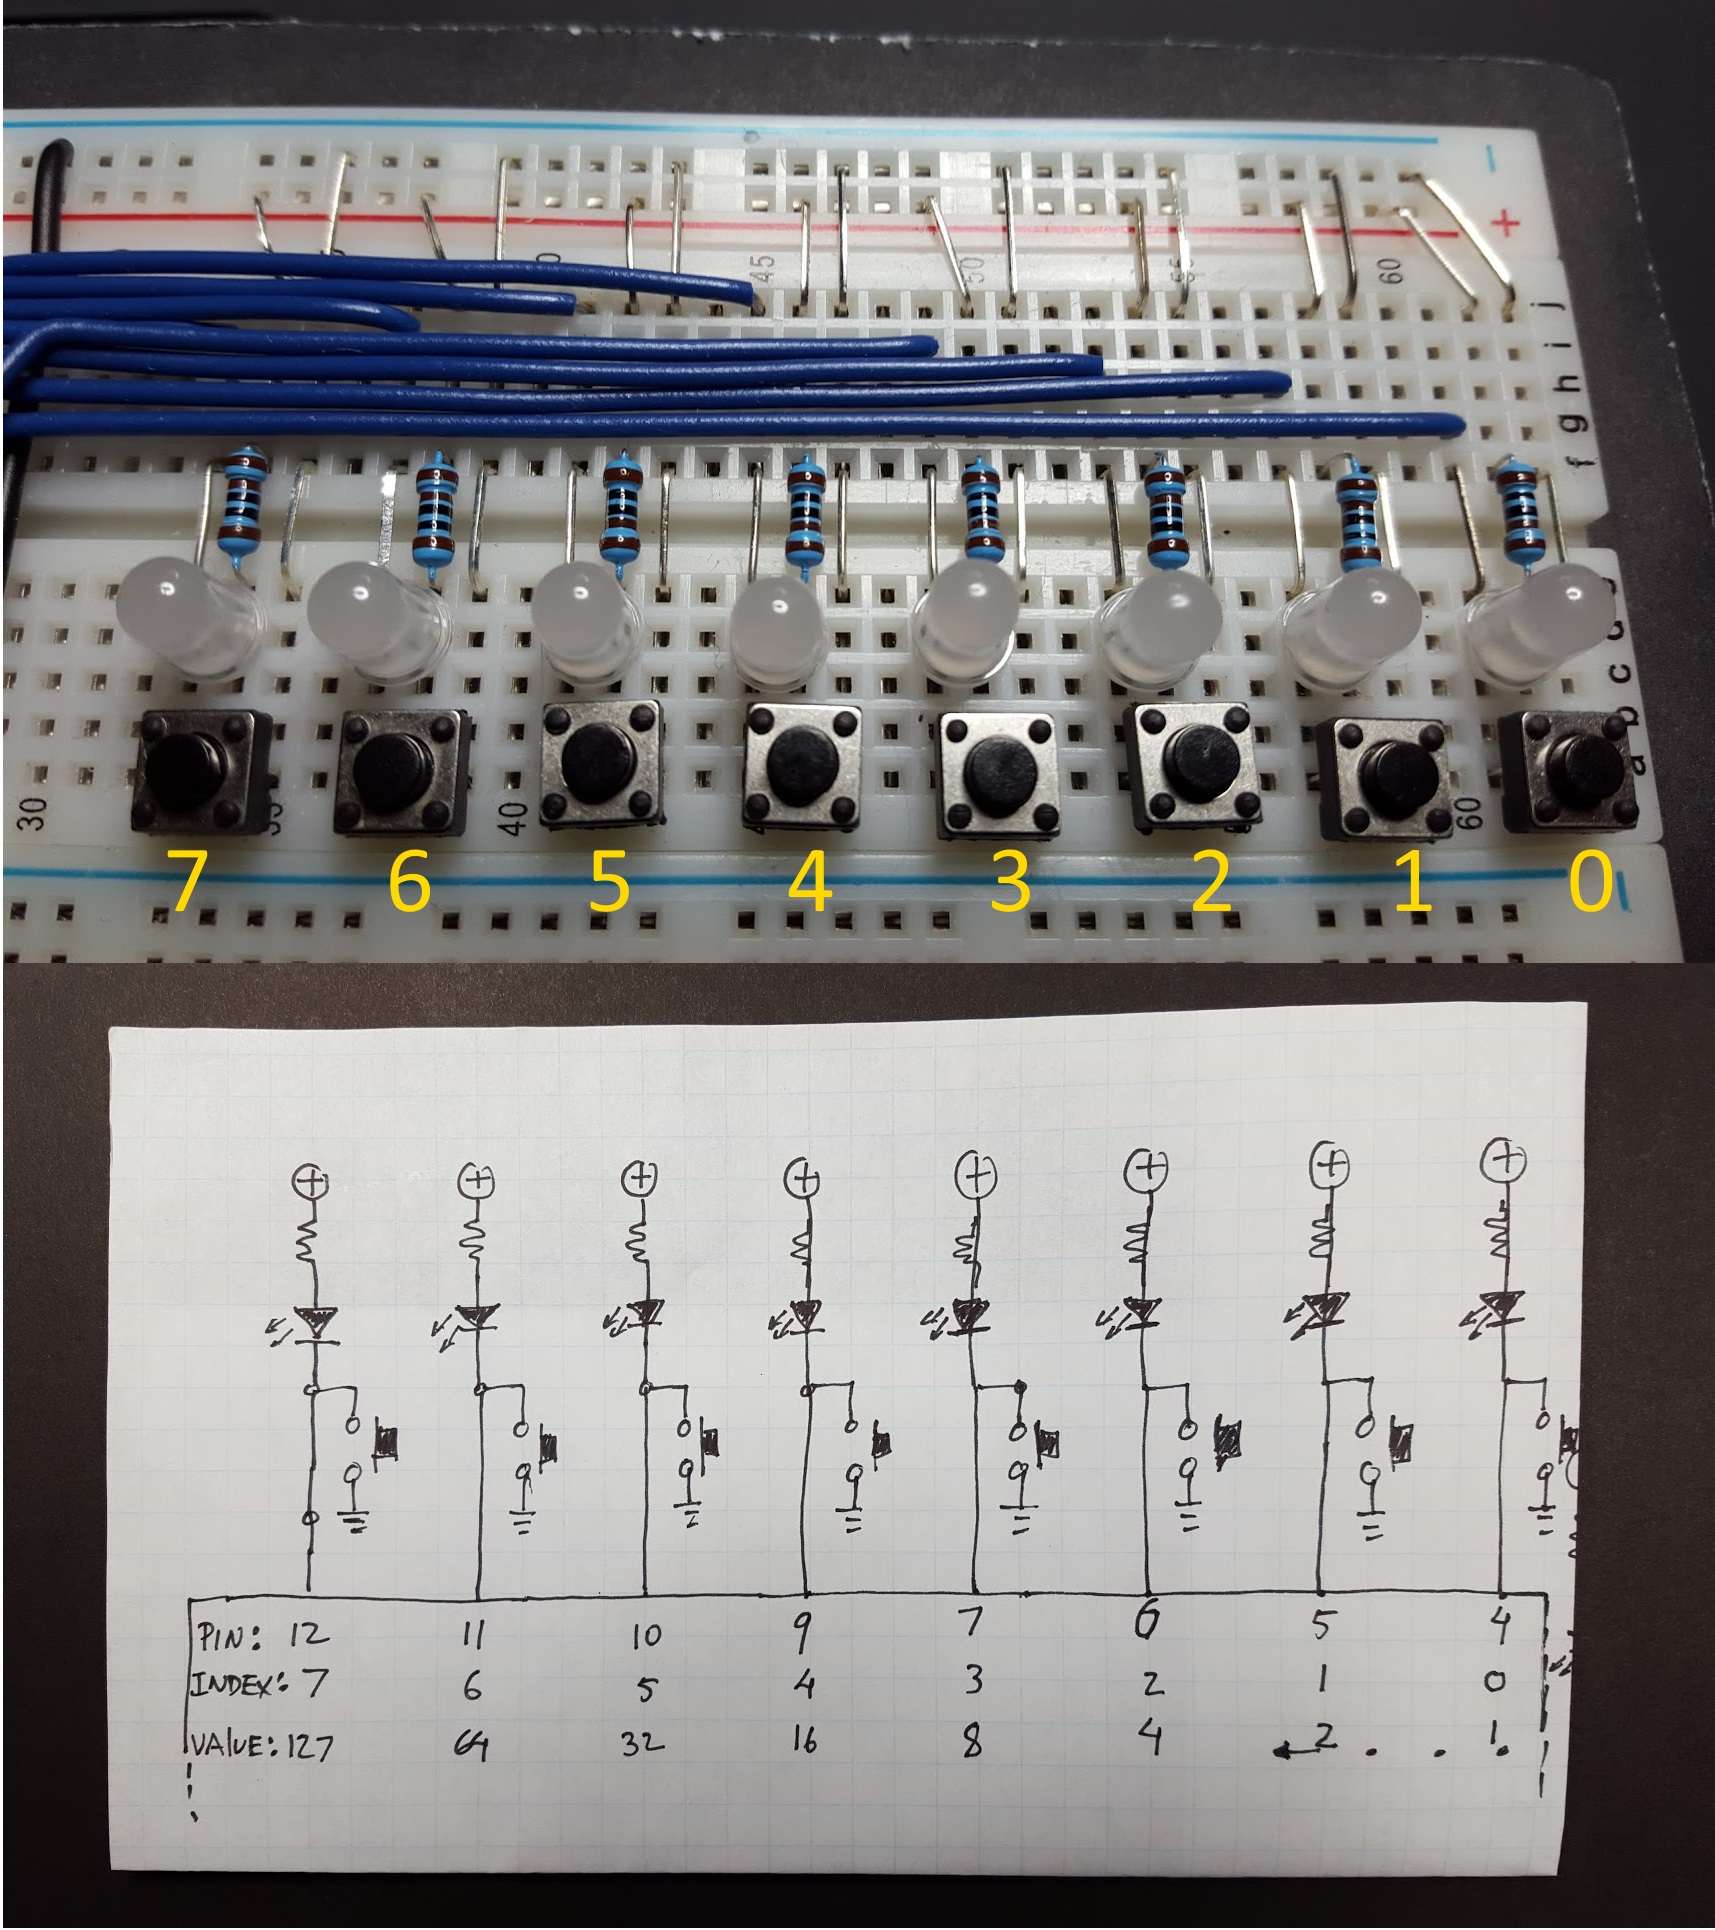 −
+
45
50
55
60
j
i
h
g
f
c
b
a
30
40
60
7 6 5 4 3 2 1 0
−
PIN: 12 11 10 9 7 6 5 4
INDEX: 7 6 5 4 3 2 1 0
VALUE: 127 64 32 16 8 4 2 1